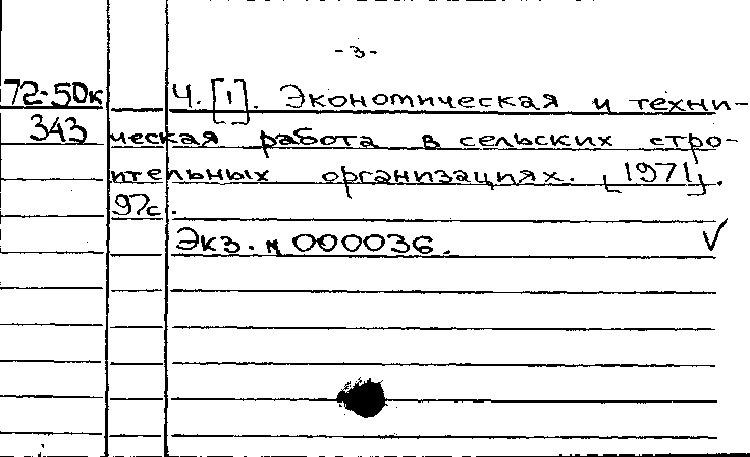 -3-
72-50к Ч. [1]. Экономическая и техни-
343 ческая работа в сельских стро-
ительных организациях. [1971].
97с.
Экз. № 000036. V